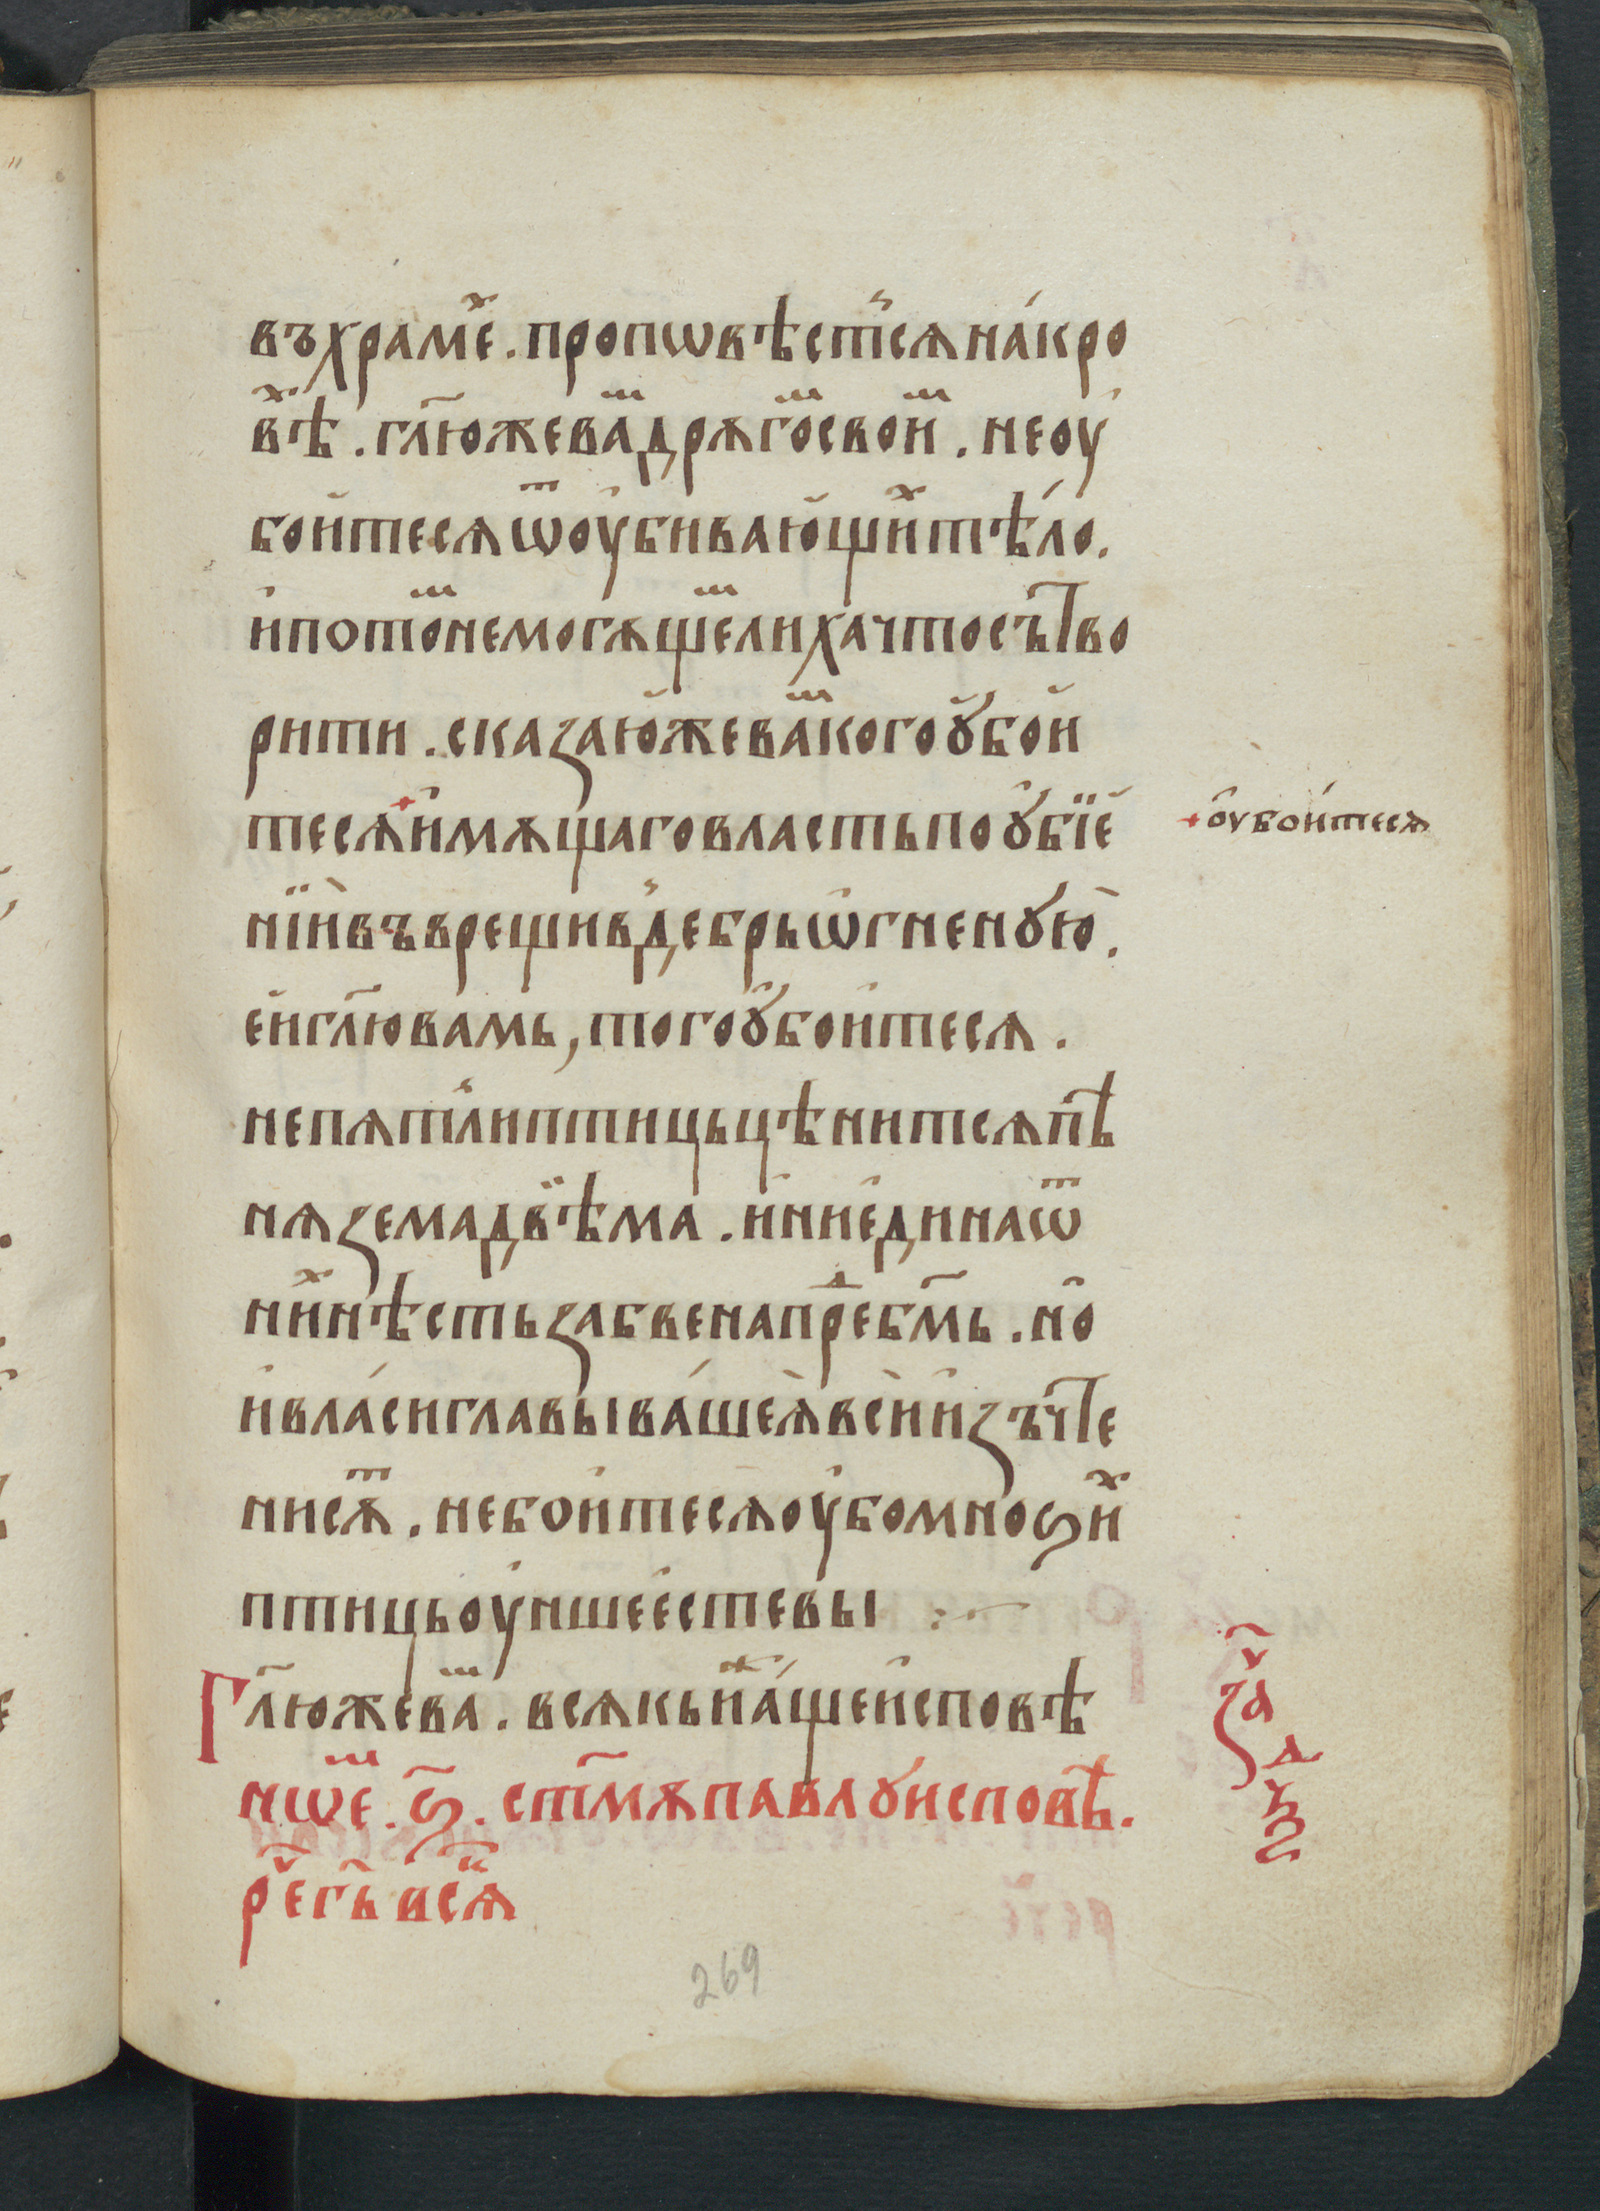 въ храмⷯе҆. проповѣстⷭ҇сѧ на́ кро
вⷯѣ. гл҃ю же ваⷨ дрѫгоⷨ своиⷨ. не оу
бои҆тесѧ ѿ оу҆бива́ю҆щиⷯ тѣ́ло.
и҆ потоⷨ не могѫщеⷨ лиха что сътво
рити. сказаю҆ же ваⷨ кого ꙋ҆бои
тесѧ и҆мѫщаго власть по ꙋ҆бїе҆
нїи҆ въврещи вⸯ дебрь ѡ҆гненꙋю҆.
еи҆ гл҃ю вамь, того ꙋ҆бои҆тесѧ.
+ оу҆бои́тесѧ
не пѧтⸯ ли птиць цѣнитсѧ пѣ
нѧзема двѣма. и҆ ни е҆дина ѿ
ниⷯ нѣсть забвена преⷣ бм҃ь. но҆
и҆ вла́си главы ва́шеѧ̀ вси҆ и҆зъчте
ни сѫⷮ. не бои҆тесѧ оу҆бо мноѕиⷯ
птиць оу҆нше е҆сте вы :~
Гл҃ю же ваⷨ. всякь и҆́же а́ще и҆сповѣ
за҆ⷱ
нѡⷨе. ѕ҃. ст҃мѫ павлꙋ исповѣ.
ⷣ
рⷱе гь҃ всѧ